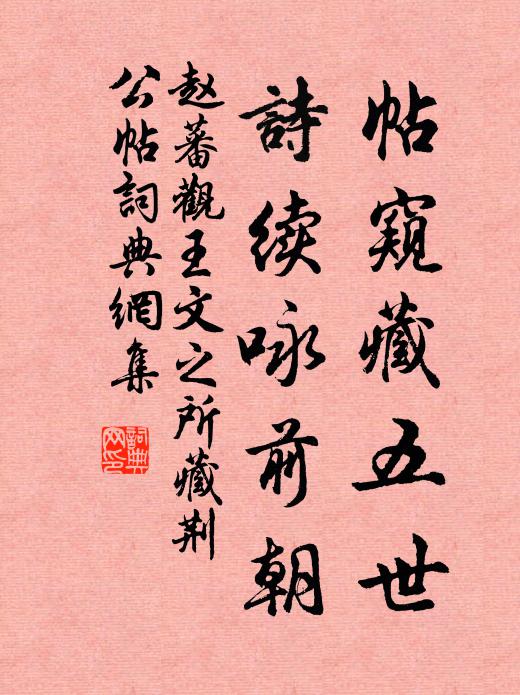 帖窺藏五世
詩续咏前朝
赵蕃觀王文之所藏荆
公帖詞典網集
詞典网印